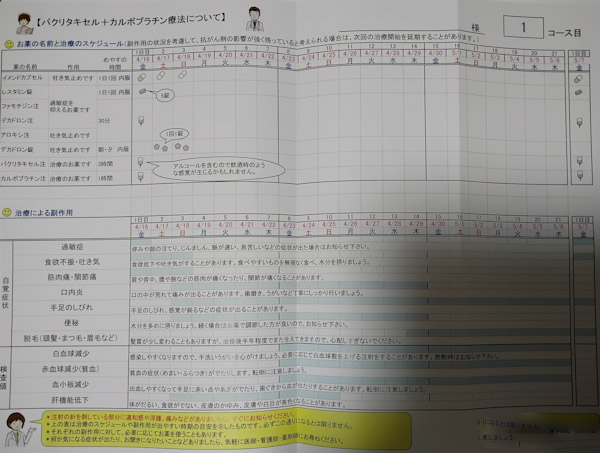 【パクリタキセル＋カルボプラチン療法について】
様 1 コース目
お薬の名前と治療のスケジュール(副作用の状況を考慮して、抗がん剤の影響が強く残っていると考えられる場合は、次回の治療開始を延期することがあります。)
1日目 2 3 4 5 6 7 8 9 10 11 12 13 14 15 16 17 18 19 20 21 1日目
薬の名前 作用 めやすの時間 4/16 4/17 4/18 4/19 4/20 4/21 4/22 4/23 4/24 4/25 4/26 4/27 4/28 4/29 4/30 5/1 5/2 5/3 5/4 5/5 5/6 5/7
金 土 日 月 火 水 木 金 土 日 月 火 水 木 金 土 日 月 火 水 木 金
イメンドカプセル 吐き気止めです 1日1回 内服
レスタミン錠 1日1回 内服 5錠
ファモチジン注 過敏症を抑えるお薬です
デカドロン注 30分
アロキシ注 吐き気止めです
デカドロン錠 吐き気止めです 朝・夕 内服 1回1錠
パクリタキセル注 治療のお薬です 3時間 アルコールを含むので飲酒時のような感覚が生じるかもしれません。
カルボプラチン注 治療のお薬です 1時間
治療による副作用
1日目 2 3 4 5 6 7 8 9 10 11 12 13 14 15 16 17 18 19 20 21 1日目
4/16 4/17 4/18 4/19 4/20 4/21 4/22 4/23 4/24 4/25 4/26 4/27 4/28 4/29 4/30 5/1 5/2 5/3 5/4 5/5 5/6 5/7
金 土 日 月 火 水 木 金 土 日 月 火 水 木 金 土 日 月 火 水 木 金
自覚症状
過敏症 痒みや顔のほてり、じんましん、脈が速い、息苦しいなどの症状が出た場合はお知らせ下さい。
食欲不振・吐き気 食欲低下や吐き気がすることがあります。食べやすいものを無理なく食べ、水分を摂りましょう。
筋肉痛・関節痛 肩や背中、腰や腕などの筋肉が痛くなったり、関節が痛くなることがあります。
口内炎 口の中が荒れて痛みが出ることがあります。歯磨き、うがいなど丁寧にしっかり行いましょう。
手足のしびれ 手足のしびれ、感覚が鈍るなどの症状が出ることがあります。
便秘 水分を多めに摂りましょう。続く場合はお薬で調節した方が良いので、お知らせ下さい。
脱毛(頭髪・まつ毛・眉毛など) 髪質が少し変わることもありますが、治療後半年程度でまた生えてきますので、心配しすぎないでください。
検査値
白血球減少 感染しやすくなりますので、手洗いうがいを心がけましょう。必要に応じて白血球数を上げる注射をすることがあります。発熱時はお知らせ下さい。
赤血球減少(貧血) 貧血の症状(めまい・ふらつき)がでたりします。転倒に注意しましょう。
血小板減少 出血しやすくなって手足に赤い点やあざがでたり、歯ぐきから血が出たりすることがあります。転倒に注意しましょう。
肝機能低下 体がだるい、食欲がでない、皮膚のかゆみ、皮膚や白目が黄色くなることがあります。
・注射の針を刺している部分に違和感や浮腫、痛みなどがありましたら、すぐにお知らせください。
・上の表は治療のスケジュールや副作用が出やすい時期の目安を示したものです。必ずこの通りになるとは限りません。
・それぞれの副作用に対して、必要に応じてお薬を使うこともあります。
・何か気になる症状が出たり、お聞きになりたいことなどありましたら、気軽に医師・看護師・薬剤師にお尋ねください。